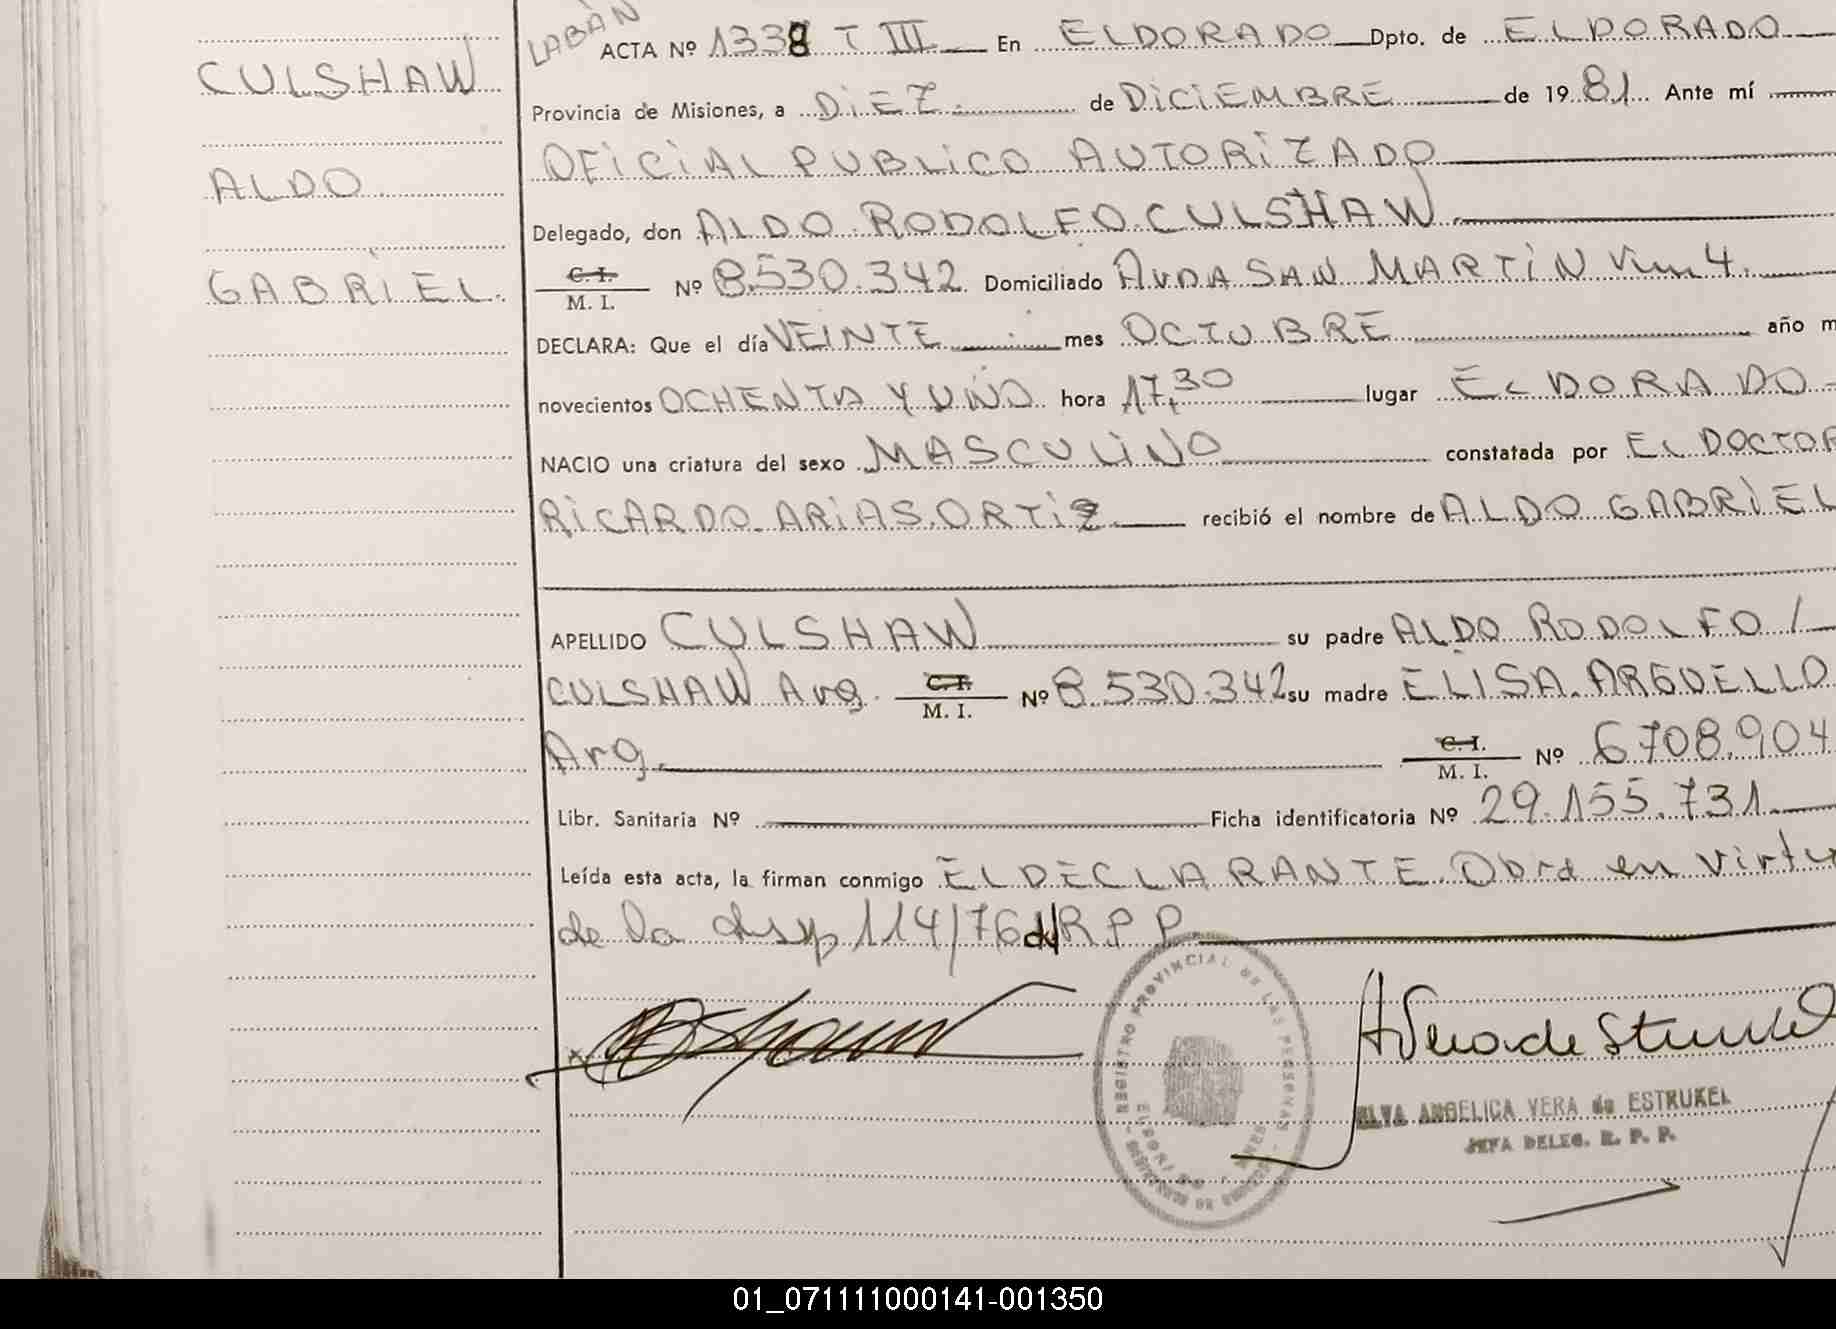 LABÁN
CULSHAW
ALDO
GABRIEL.
ACTA Nº 1338 T III En ELDORADO Dpto. de ELDORADO
Provincia de Misiones, a DIEZ. de DICIEMBRE de 1981 Ante mí
OFICIAL PUBLICO AUTORIZADO
Delegado, don ALDO RODOLFO CULSHAW
C. I. / M. I. Nº 8.530.342 Domiciliado AVDA SAN MARTIN Km 4.
DECLARA: Que el día VEINTE mes OCTUBRE año m
novecientos OCHENTA Y UNO hora 17,30 lugar ELDORADO
NACIO una criatura del sexo MASCULINO constatada por EL DOCTOR
RICARDO ARIAS ORTIZ recibió el nombre de ALDO GABRIEL
APELLIDO CULSHAW su padre ALDO RODOLFO /
CULSHAW Arg. C. I. / M. I. Nº 8.530.342 su madre ELISA ARGUELLO
Arg. C. I. / M. I. Nº 6708.904
Libr. Sanitaria Nº Ficha identificatoria Nº 29.155.731
Leída esta acta, la firman conmigo EL DECLARANTE. Obra en virtu
de la disp 114/76 d/ R P P
REGISTRO PROVINCIAL DE LAS PERSONAS
ELDORADO
ELVA ANGELICA VERA de ESTRUKEL
JEFA DELEG. R. P. P.
01_071111000141-001350